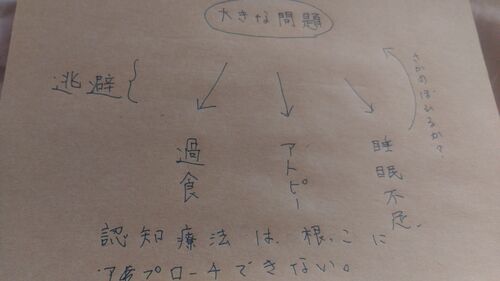 大きな問題
逃避
過食
アトピー
睡眠不足
さかのぼれるか?
認知療法は、根っこに
アプローチできない。